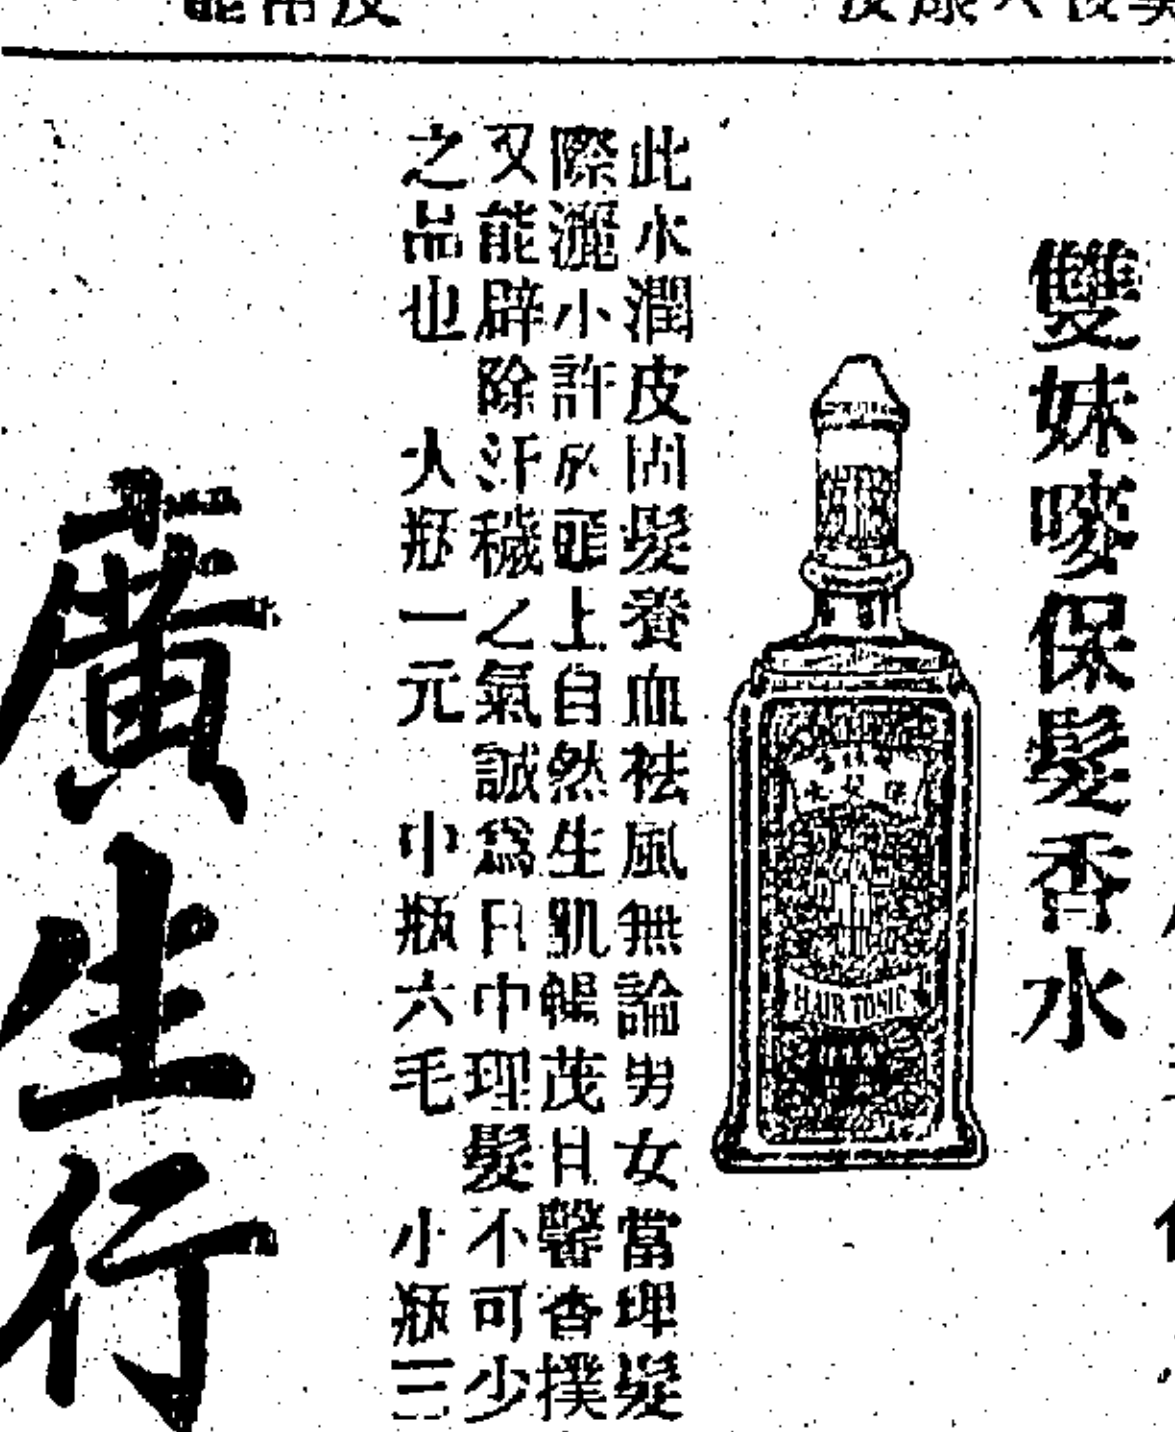 雙妹嘜保髮香水
HAIR TONIC
此水潤皮固髮養血祛風無論男女當理髮
際灑小許於頭上自然生肌暢茂且馨香撲
又能辟除汗穢之氣誠爲日中理髮不可少
之品也 大瓶一元 中瓶六毛 小瓶三
廣生行